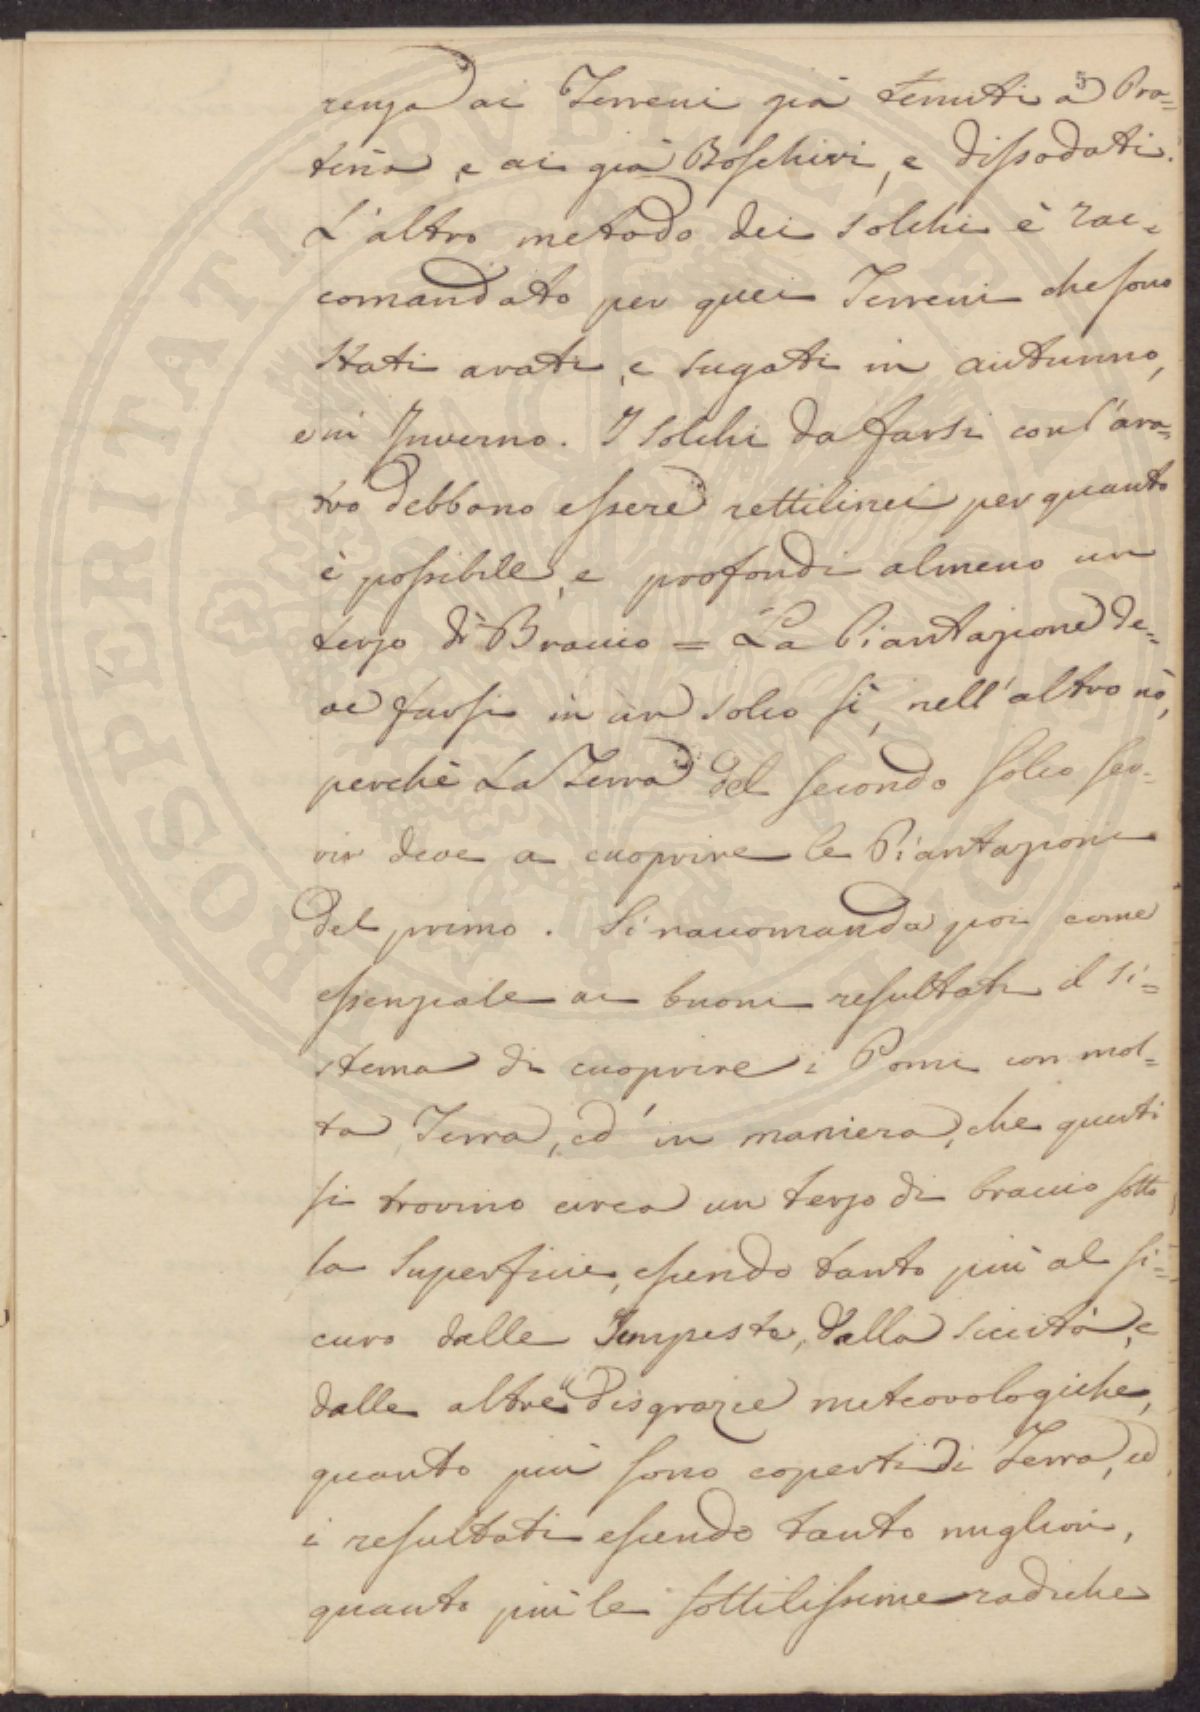 5
renza ai Terreni già tenuti a Pra=
teria, e ai già Boschivi, e dissodati.
L'altro metodo dei solchi è rac=
comandato per quei Terreni che sono
stati arati, e sugati in autunno,
e in Inverno. I solchi da farsi con l'ara=
tro debbono essere rettilinei per quanto
è possibile, e profondi almeno un
terzo di Braccio = La Piantazione de=
ve farsi in un solco sì, nell'altro nò,
perchè La Terra del secondo solco ser=
vir deve a cuoprire le Piantazioni
del primo. Si raccomanda poi come
essenziale ai buoni resultati il si=
stema di cuoprire i Pomi con mol=
ta Terra, ed in maniera, che questi
si trovino circa un terzo di braccio sotto
la Superficie, essendo tanto più al si=
curo dalle Tempeste, dalla siccità, e
dalle altre disgrazie meteorologiche,
quanto più sono coperti di Terra, ed
i resultati essendo tanto migliori,
quanto più le sottilissime radiche
SOSPERITATI PVBLICAE AVGENDAE